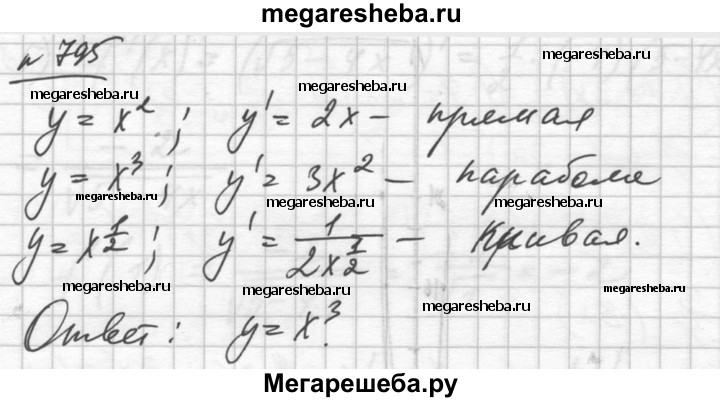 megaresheba.ru
№ 795
megaresheba.ru
megaresheba.ru
y = x²; y' = 2x – прямая
megaresheba.ru
megaresheba.ru
y = x³; y' = 3x² – парабола
megaresheba.ru
megaresheba.ru
megaresheba.ru
y = x^(1/2); y' = 1/(2x^(1/2)) – Кривая.
megaresheba.ru
megaresheba.ru
megaresheba.ru
Ответ: y = x³.
megaresheba.ru
Мегарешеба.ру